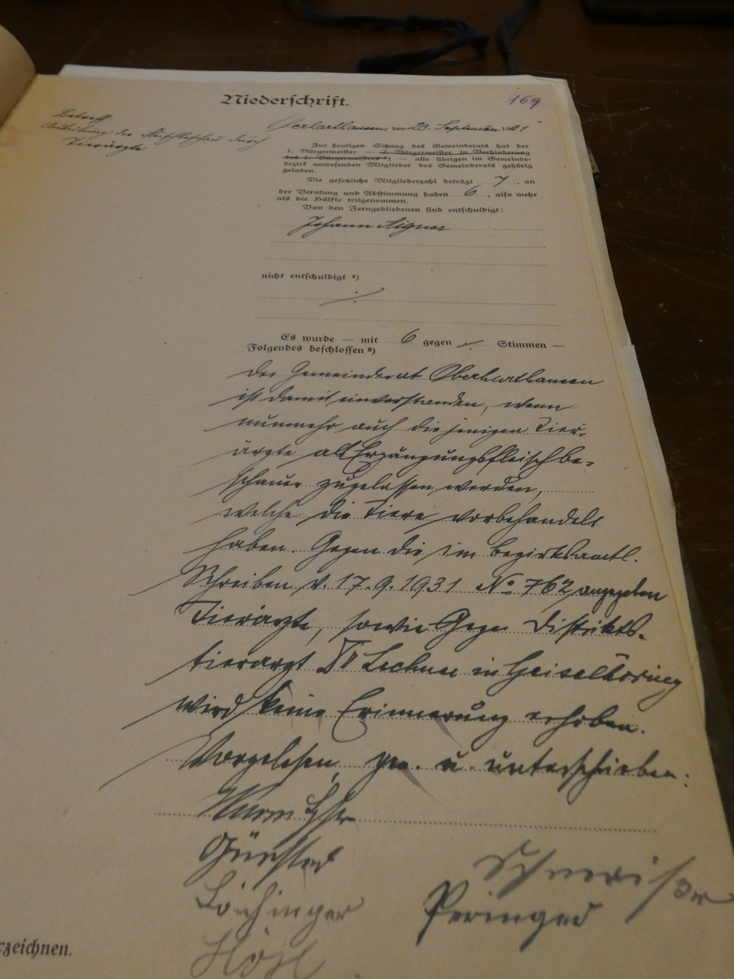 Niederschrift.
169
Betreff
Ausübung der Fleischbeschau durch
Tierärzte
Oberharthausen, den 23. September 1931
Zur heutigen Sitzung des Gemeinderats hat der
1. Bürgermeister — 2. Bürgermeister in Verhinderung
des 1. Bürgermeisters — alle übrigen im Gemeinde-
bezirk anwesenden Mitglieder des Gemeinderats gehörig
geladen.
Die gesetzliche Mitgliederzahl beträgt 7, an
der Beratung und Abstimmung haben 6, also mehr
als die Hälfte teilgenommen.
Von den Ferngebliebenen sind entschuldigt:
Johann Aigner
nicht entschuldigt ¹)
Es wurde — mit 6 gegen ./. Stimmen —
Folgendes beschlossen ²)
Der Gemeinderat Oberharthausen
ist damit einverstanden, wenn
nunmehr auch diejenigen Tier-
ärzte als Ergänzungsfleischbe-
schauer zugelassen werden,
welche die Tiere vorbehandelt
haben. Gegen die im bezirksamtl.
Schreiben v. 17.9.1931 No 762 angegeben
Tierärzte, sowie Gegen Distrikts-
tierarzt Dr Lechner in Geiselhöring
wird keine Erinnerung erhoben.
Vorgelesen, gen. u. unterschrieben:
Loichinger
Peringer
Hösl
rzeichnen.